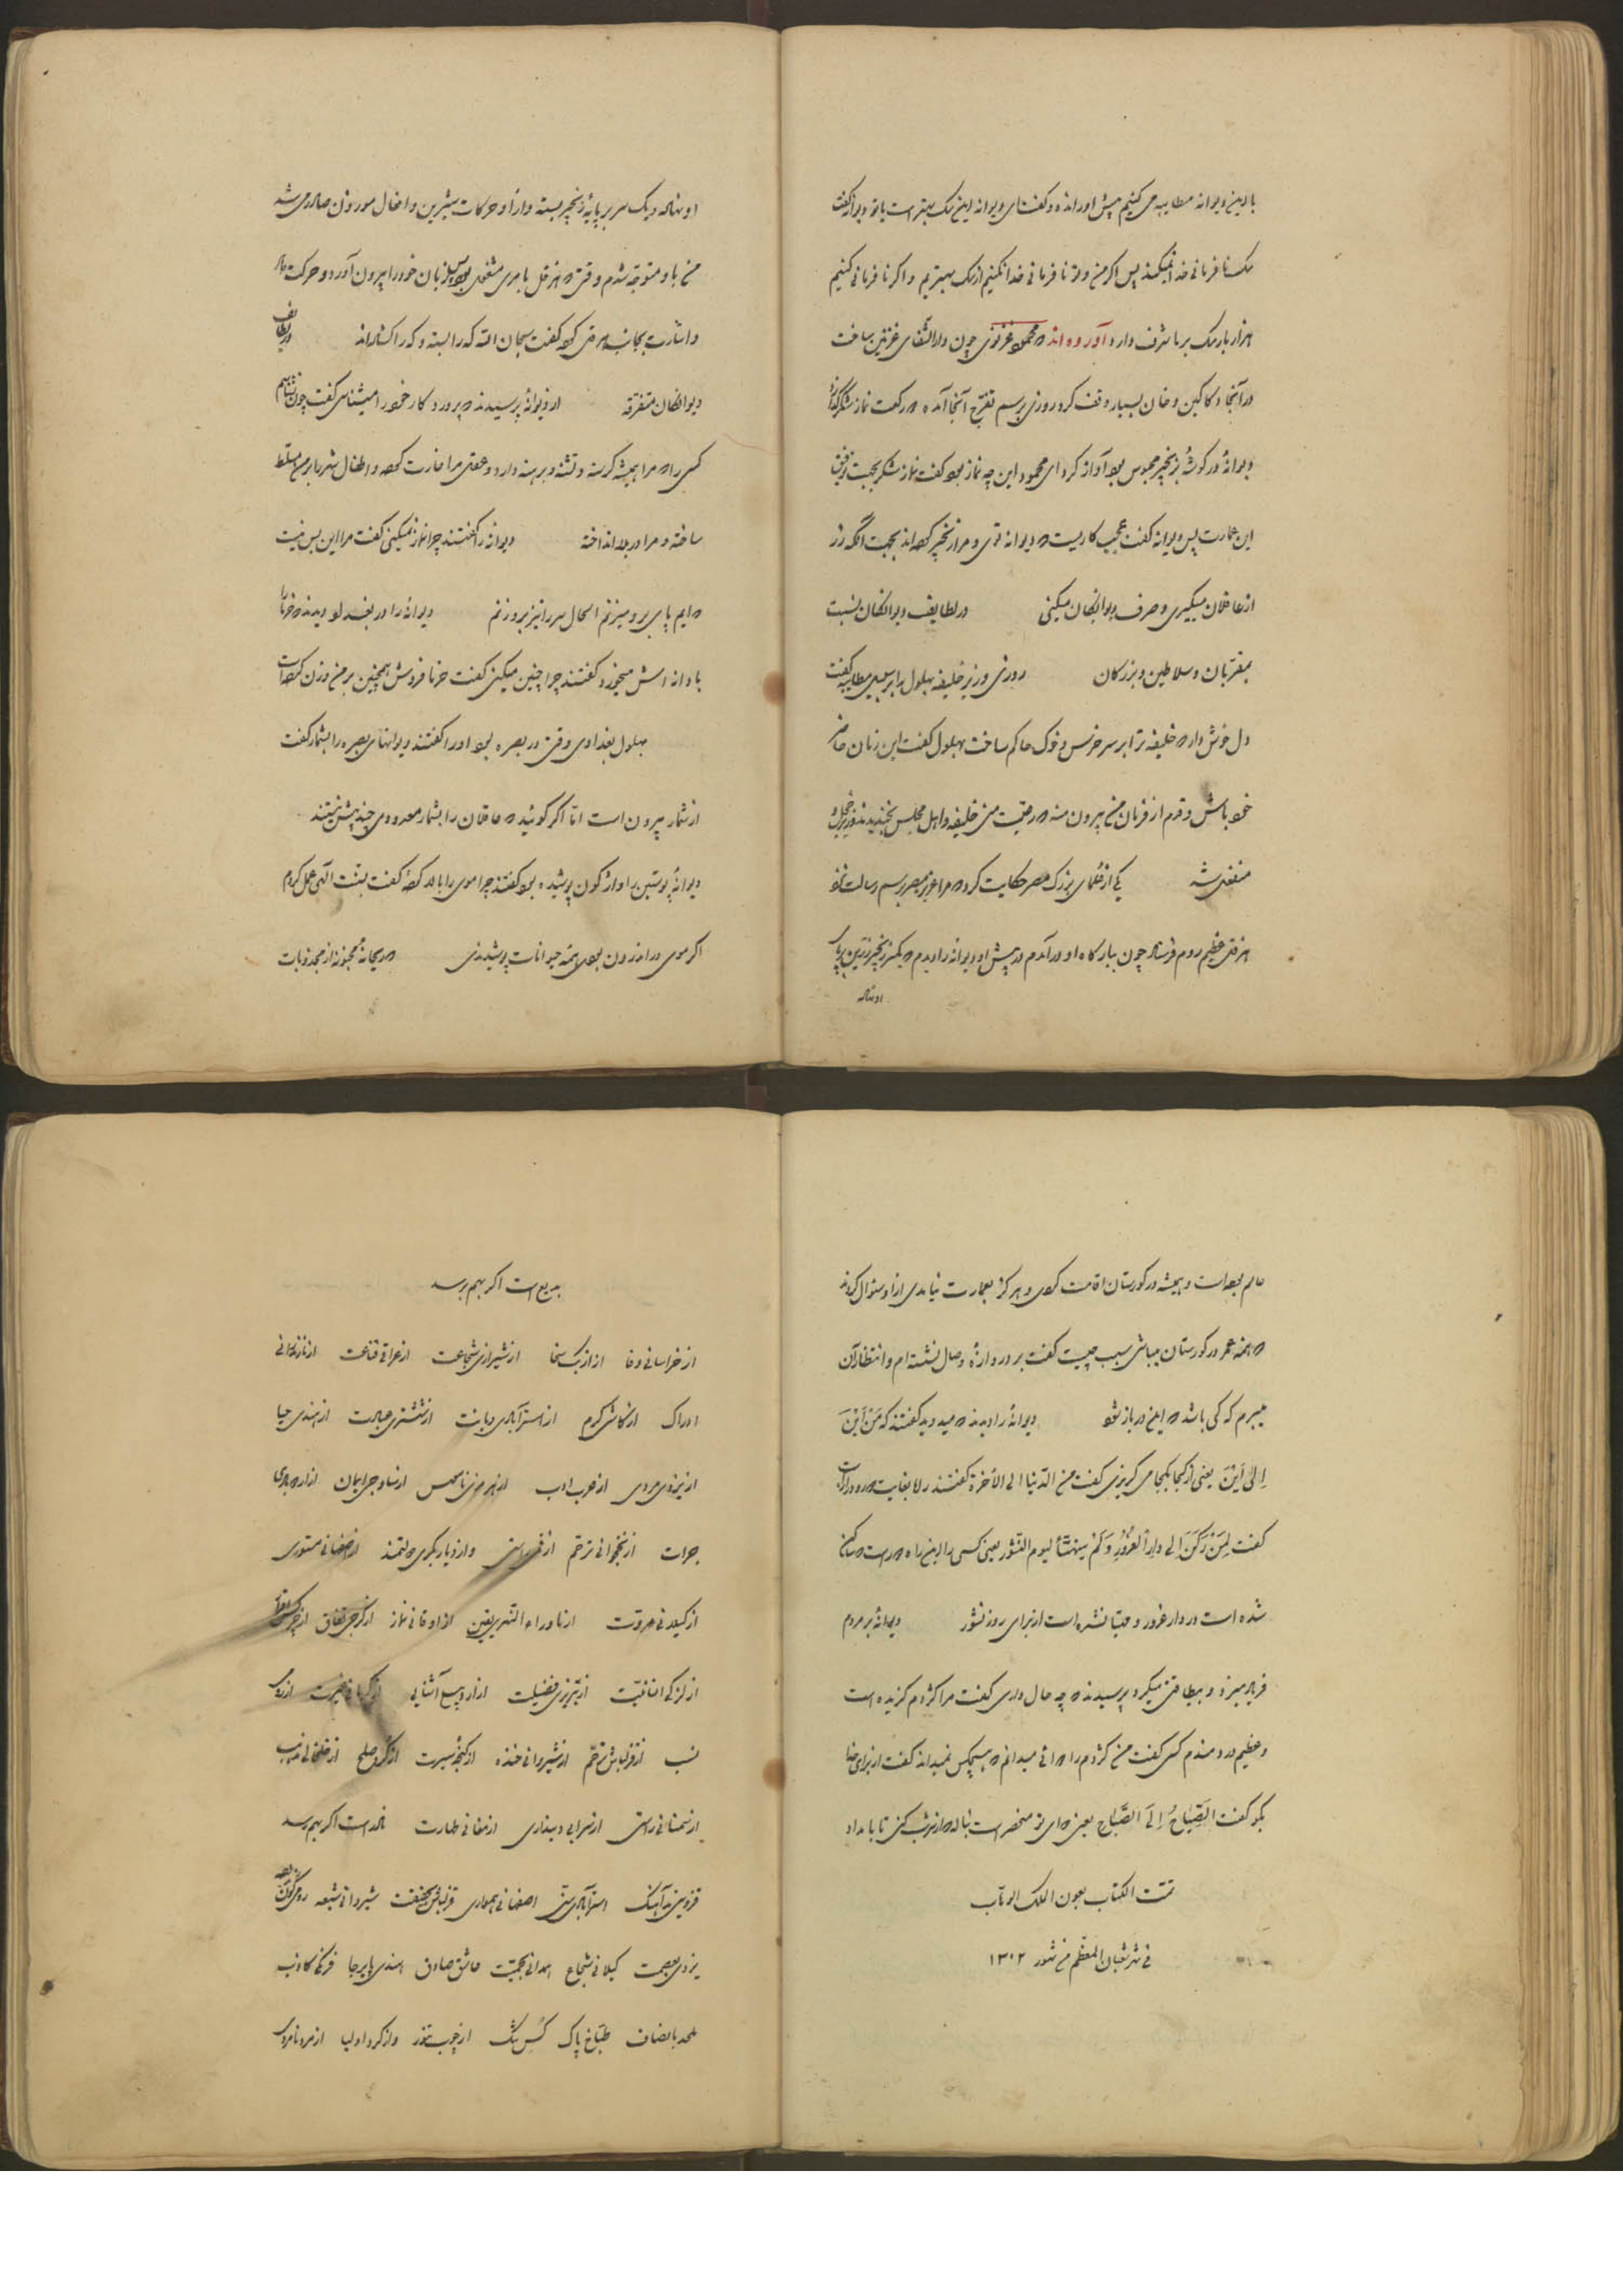 با این دیوانه مطایبه می کنیم پیش او رانده و گفت ای دیوانه این سک بهتر است یا تو دیوانه گفت
سک نافرمانی خدا نمیکند پس اگر من و تو نافرمانی خدا نکنیم از سک بهتریم و اگر نافرمانی کنیم
هزار بار سک بر ما شرف دارد آورده اند که محمود غزنوی چون دارالشفای غزنین ساخت
در آنجا دکاکین و خان بسیار وقف کرد روزی برسم تفرج آنجا آمده دو رکعت نماز شکر
دیوانهٔ در گوشهٔ بزنجیر محبوس بود آواز کرد ای محمود این چه نماز بود گفت نماز شکر بجهت توفیق
این عمارت پس دیوانه گفت عجب کاریست که دیوانه توی و مرا زنجیر کرده اند بجهت آنکه زر
از عاقلان میگیری و صرف دیوانگان میکنی در لطایف دیوانگان نسبت
بمقربان و سلاطین و بزرگان روزی وزیر خلیفه بهلول را بر سبیل مطایبه گفت
دل خوش دار که خلیفه ترا بر سر خرس و خوک حاکم ساخت بهلول گفت این زمان حاضر
خود باش و قدم از فرمان من بیرون منه که رعیت منی خلیفه و اهل مجلس بخندیدند وزیر خجل و
منفعل شد یکی از علمای بزرک مصر حکایت کرد که مرا عزیز مصر برسم رسالت نزد
هرقل عظیم روم فرستاد چون ببارگاه او درآمدم در پیش او دیوانه را دیدم که یکسر زنجیر زرین بر پای
او نهاده
او نهاده و یک سر بر پایهٔ زنجیر بسته و از او حرکات شیرین و افعال موزون صادر می شد
من باو متوجه شدم وقتی که هرقل بامری مشغول بود پس زبان خود را بیرون آورد و حرکت داد
و اشارت بجانب هرقل کرد گفت سبحان الله که را بسته و که را گشاده اند در لطایف
دیوانگان متفرقه از دیوانهٔ پرسیدند که پروردکار خود را میشناسی گفت چون نشناسم
کسی را که مرا همیشه گرسنه و تشنه و برهنه دارد و عقل مرا غارت کرده و اطفال شهر را بر من مسلط
ساخته و مرا در بلا انداخته دیوانه را گفتند چرا نماز نمیکنی گفت مرا این بس نیست
که ایم پا بر زمین میزنم الحال سر را نیز بر زنم دیوانهٔ را در بغداد دیدند که خرما را
با دانه اش میخورد گفتند چرا چنین میکنی گفت خرما فروش همچنین بر من وزن کرده است
بهلول بغدادی وقتی در بصره بود او را گفتند دیوانهای بصره را بشمار گفت
از شمار بیرون است اما اگر گوئید که عاقلان را بشمار معدودی چند بیش نیستند
دیوانهٔ پوستین را واژگون پوشیده بود گفتند چرا موی را بالا کردهٔ گفت بسنت الهی عمل کردم
اگر موی در اندرون بودی همه حیوانات پوشیدندی که ریحانهٔ مجنونه از مجذوبات
عالم بوده است و همیشه در گورستان اقامت کردی و هرگز بعمارت نیامدی از او سئوال کردند
که همه عمر در گورستان میباشی سبب چیست گفت بر دروازهٔ وصال نشسته ام و انتظار آن
میبرم که کی باشد که این در باز شود دیوانهٔ را دیدند که میدوید گفتند که مَنْ اَیْنَ
اِلیٰ اَیْنَ یعنی از کجا بکجا می گریزی گفت من الدّنیا الی الآخرة گفتند راه بغایت دور و دراز است
گفت لِمَنْ رَکَنَ الی دارِ الغُرُورِ وَ لَمْ یتهیّأ لیوم النشور یعنی کسی را این راه دور است که ساکن
شده است در دار غرور و مهیا نشده است از برای روز نشور دیوانهٔ بر مردم
فریاد میزد و بیطاقتی میکرد پرسیدند که چه حال داری گفت مرا کژدم گزیده است
و عظیم دردمندم کسی گفت من کژدم را دوائی میدانم که هیچکس نمیداند گفت از برای خدا
بگو گفت الصِّیاحُ اِلَی الصَّباح یعنی دوای تو منحصر است بناله که از سر شب کنی تا بامداد
تمت الکتاب بعون الملک الوهاب
فی شهر شعبان المعظم من شهور ۱۳۰۲
بدیع است اگر بهم برسد
از خراسانی وفا از ازبک سخا از شیرازی شجاعت از عراقی قناعت از مازندرانی
ادراک از کاشی کرم از استرآبادی دیانت از تشتری عبادت از هندی حیا
از یزدی مردی از عرب ادب از هرموزی ناموس از ساوجی ایمان از
جرات از نخجوانی ترحم از راستی و از دیاربکری دولتمند از اصفهانی مستوری
از گیلانی مروت از ماوراء النهر یقین از اوغانی نماز از گرجی نفاق از
از لزکی انسانیت از تبریزی فضیلت از آشنایی از کرمانی غیرت از
نسب از قزلباش ترحم از شیروانی خنده از گنجهٔ سیرت از کرد صلح از خلخالی
از سمنانی راستی از دینداری از مغانی طهارت نادر است اگر بهم رسد
قزوینی آهنک استرآبادی سنی اصفهانی همواری قزلباش شیروانی شیعه
یزدی بعصمت گیلانی شجاع همدانی عاشق صادق هندی پابرجا فرنگی کاذب
ملحد با انصاف طباخ پاک کس تنک از چوب تنور و از کرد اولیا از مرد نامردی